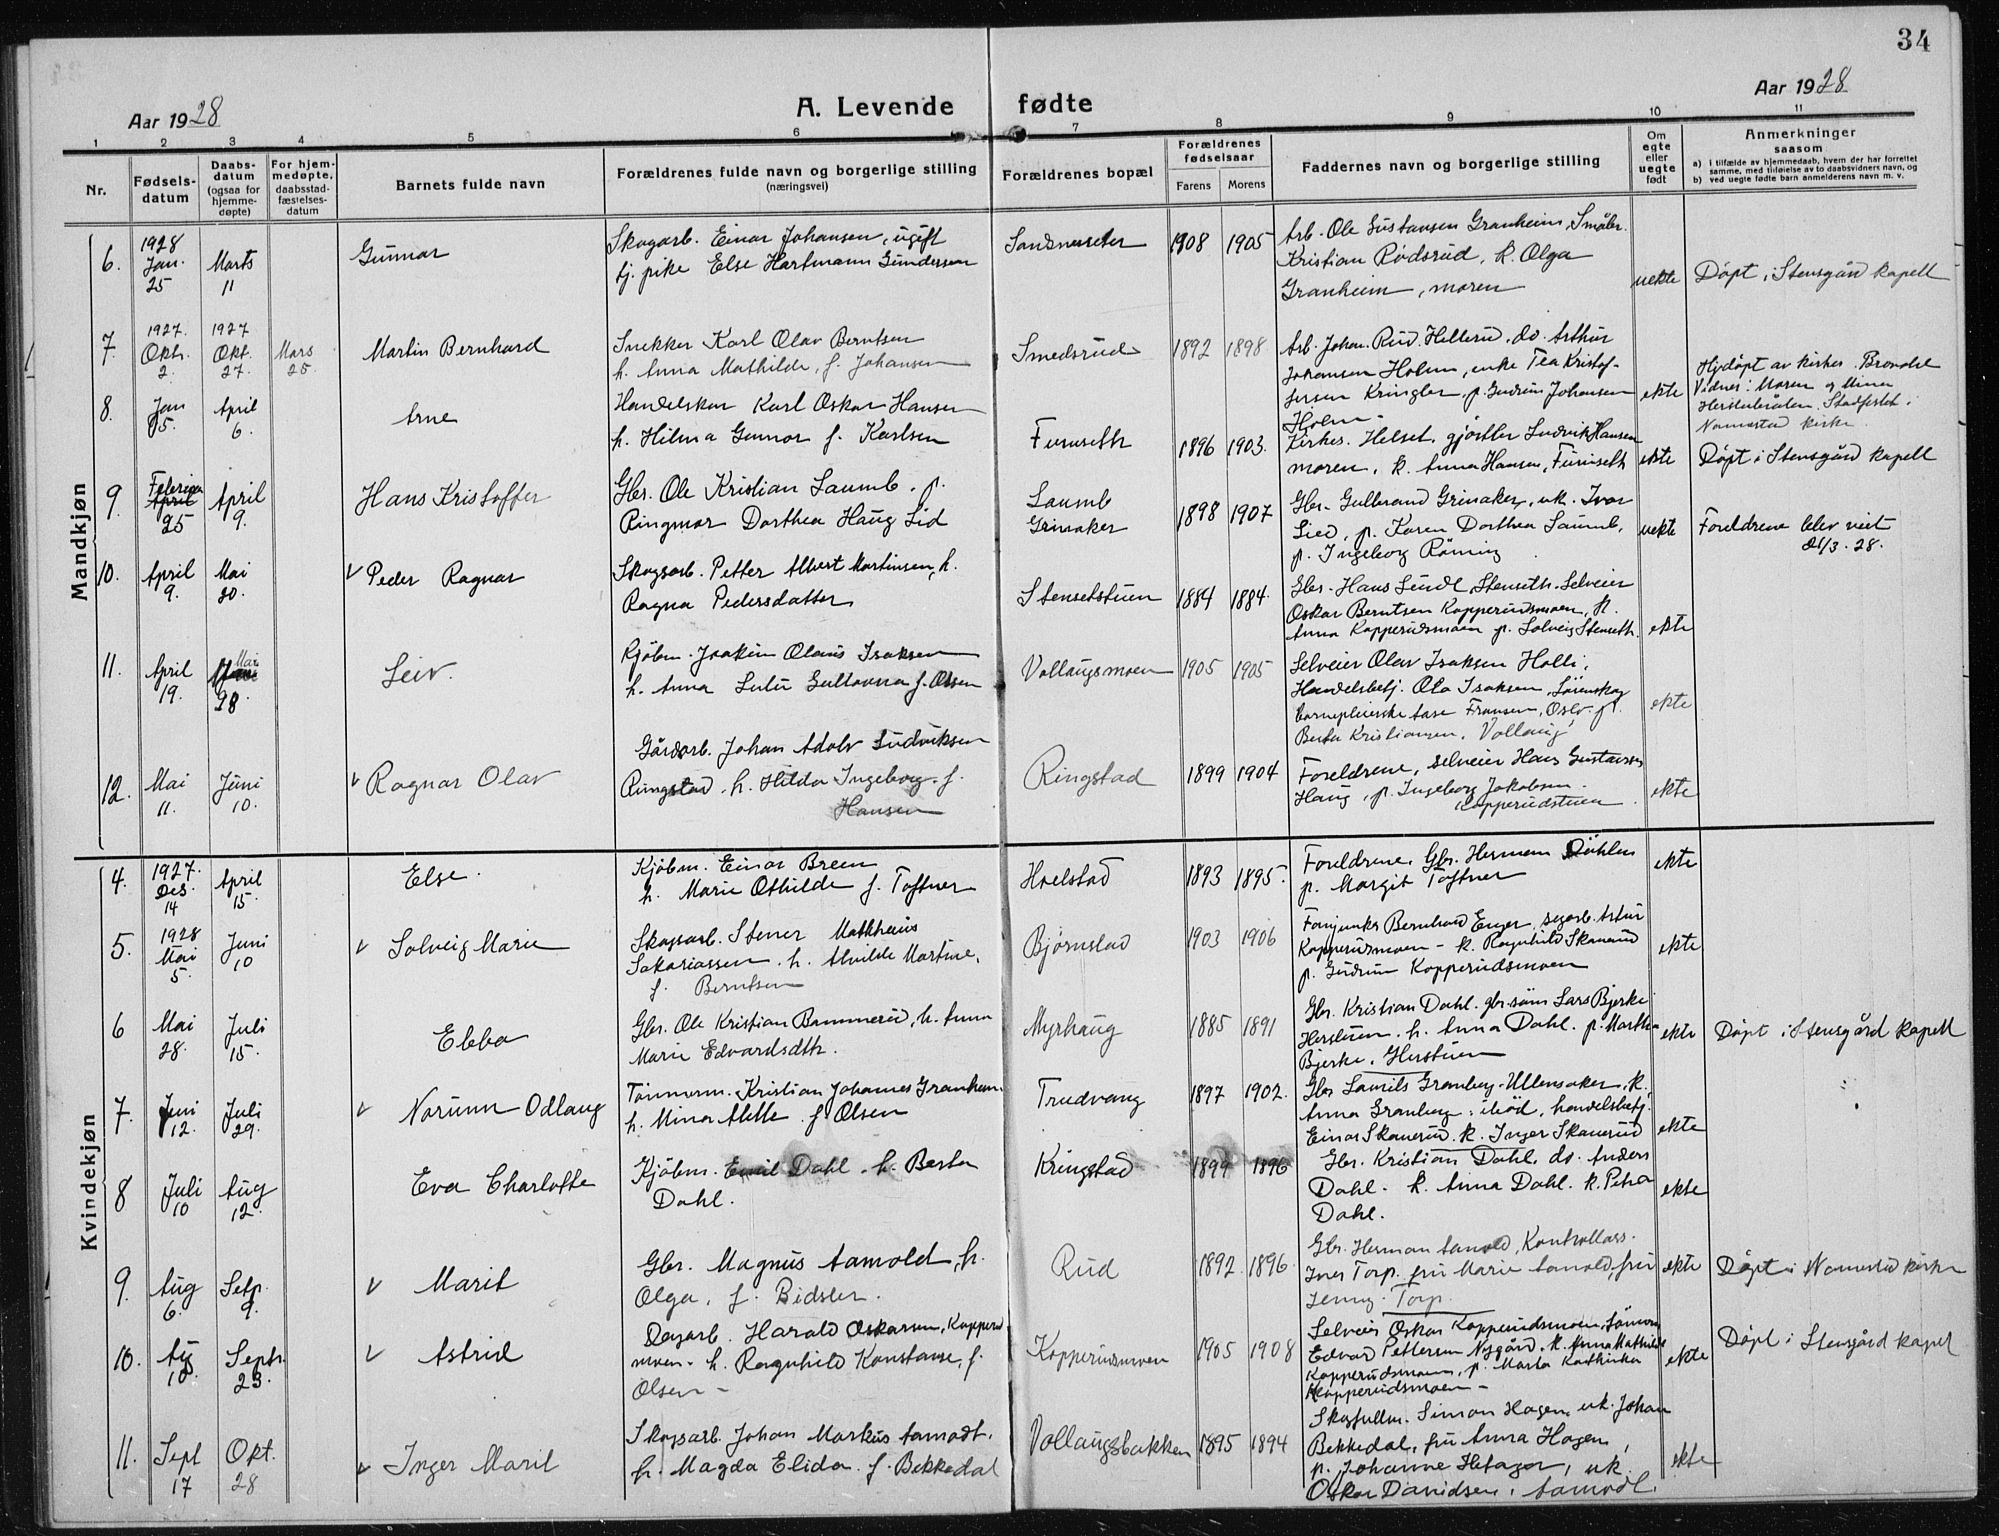 34
Aar 1928
A. Levende fødte
Aar 1928
1 2 3 4 5 6 7 8 9 10 11
Nr.
Fødsels-
datum
Daabs-
datum
(ogsaa for
hjemme-
døpte)
For hjem-
medøpte,
daabsstad-
fæstelses-
datum
Barnets fulde navn
Forældrenes fulde navn og borgerlige stilling
(næringsvei)
Forældrenes bopæl
Forældrenes
fødselsaar
Farens Morens
Faddernes navn og borgerlige stilling
Om
egte
eller
uegte
født
Anmerkninger
saasom
a) i tilfælde av hjemmedaab, hvem der har forrettet
samme, med tilføielse av to daabsvidners navn, og
b) ved uegte fødte barn anmelderens navn m. v.
Mandkjøn
6.
1928
Jan.
25
Marts
11
Gunnar
Skogarb. Einar Johansen, ugift
tj. pike Else Hartmann Gundersen
Sandnesseter
1908 1905
Arb. Ole Gustavsen Granheim, Småbr.
Kristian Rødsrud, k. Olga
Granheim, moren
uekte
Døpt i Stensgård kapell
7.
1927.
Okt.
2.
1927
Okt.
27.
Mars
25.
Martin Bernhard
Snekker Karl Olav Berntsen
h. Anna Mathilde, f. Johansen
Smedsrud
1892 1898
Arb. Johan Rud, Hellerud, do. Arthur
Johansen Holm, enke Tea Kristof-
fersen Kringler, p. Gudrun Johansen
Holm
ekte
Hjdøpt av kirkes. Brovold
Vidner: Moren og Mina
Herstuteråten. Stadfestet i
Nannestad kirke.
8.
Jan
5.
April
6.
Arne
Handelskar Karl Oskar Hansen
h. Hilma Gunnor f. Karlsen
Furuseth
1896 1903.
Kirkes. Helset, gjørtler Ludvik Hansen
moren, k. Anna Hansen, Furuseth
ekte
Døpt i Stensgård kapell
9.
Februar
April
25
April
9.
Hans Kristoffer
Gbr. Ole Kristian Laumb. p.
Ringmor Dorthea Haug Lid
Laumb
Grinaker
1898 1907
Gbr. Gulbrand Grinaker, uk. Ivar
Lied, p. Karen Dorthea Laumb,
p. Ingeborg Røning
uekte
Foreldrene blev viet
21/3. 28.
10.
April
9.
Mai
20.
Peder Ragnar
Skogsarb. Petter Albert Martinsen, h.
Ragna Pedersdatter
Stensetstuen
1884 1884.
Gbr. Hans Lindl, Stenseth. Selveier
Oskar Berntsen Kopperudsmoen, k.
Anna Kopperudsmoen p. Solveig Stenseth.
ekte
11.
April
19.
Mai
28.
Leiv.
Kjøbm. Joakim Olaus Isaksen
h. Anna Lulu Gustavna f. Olsen
Vollaugsmoen
1905 1905
Selveier Olav Isaksen Holli,
Handelsbetj. Ola Isaksen, Lørenskog
barnepleierske Aase Fransen, Oslo. p.
Berta Kristiansen, Vollaug
ekte
12.
Mai
11.
Juni
10.
Ragnar Olav
Gårdsarb. Johan Adolv Ludviksen
Ringstad. h. Hilda Ingeborg. f.
Hansen
Ringstad
1899 1904
Foreldrene, selveier Hans Gustavsen
Haug, p. Ingeborg Jakobsen
Kopperudstuen
ekte
Kvindekjøn
4.
1927.
Des.
14
April
15.
Else.
Kjøbm. Einar Breen
h. Marie Othilde f. Toftner
Hoelstad
1893 1895.
Foreldrene, Gbr. Herman Døhlen
p. Margit Toftner
ekte
5.
1928
Mai
5.
Juni
10
Solveig Marie
Skogsarb. Stener Mathæus
Sakariassen. h. Alvilde Martine,
f. Berntsen
Bjørnstad
1903 1906
Fanejunker Bernhard Enger, segarb. Artur
Kopperudsmoen - k. Ragnhild Skanerud
p. Gudrun Kopperudsmoen
ekte
6
Mai
28.
Juli
15.
Ebba
Gbr. Ole Kristian Bammerud, h. Anna
Marie Edvardsdtr.
Myrhaug
1885 1891
Gbr. Kristian Dahl. gbr.søn Lars Bjerke
Herstuen. h. Anna Dahl. p. Martha
Bjerke, Herstuen
ekte
Døpt i Stensgård kapell
7.
Juni
12.
Juli
29.
Norunn Odlaug
Tømmerm. Kristian Johannes Granheim.
h. Mina Alette f. Olsen
Trudvang
1897 1902.
Gbr. Laurits Granberg, Ullensaker, k.
Anna Granberg, ibid, handelsbetj.
Einar Skanerud. k. Inger Skanerud
ekte
8
Juli
10
Aug
12.
Eva Charlotte
Kjøbm. Emil Dahl. h. Berta
Dahl.
Kringstad
1899 1896
Gbr. Kristian Dahl, do. Anders
Dahl. k. Anna Dahl. k. Petra
Dahl.
ekte
9.
Aug
6.
Setp.
9.
Marit
Gbr. Magnus Aamold, h.
Olga, f. Bidsler.
Rud
1892 1896
Gbr. Herman Aamold, Kontrollass.
Iver Torp. fru Marie Aamold, fru
Jenny Torp.
ekte
Døpt i Nannestad kirke
10.
Aug
10.
Septr.
23.
Astrid
Dagarb. Harald Oskarsen, Kopperud
moen. h. Ragnhild Konstanse, f.
Olsen -
Kopperudsmoen
1905 1908
Selveier Oskar Kopperudsmoen,
Edvard Pettersen Nygård, k. Anna Mathilde
Kopperudsmoen, p. Marta Kathinka
Kopperudsmoen -
ekte
Døpt i Stensgård kapel
11.
Sept
17
Okt.
28
Inger Marit
Skogsarb. Johan Markus Aamodt.
h. Magda Elida. f. Bekkedal
Vollaugsbakken
1895 1894
Skogfullm. Simon Hagen, uk. Johan
Bekkedal, fru Anna Hagen,
p. Johanne Hetager, uk.
Oskar Davidsen, Aamodt.
ekte